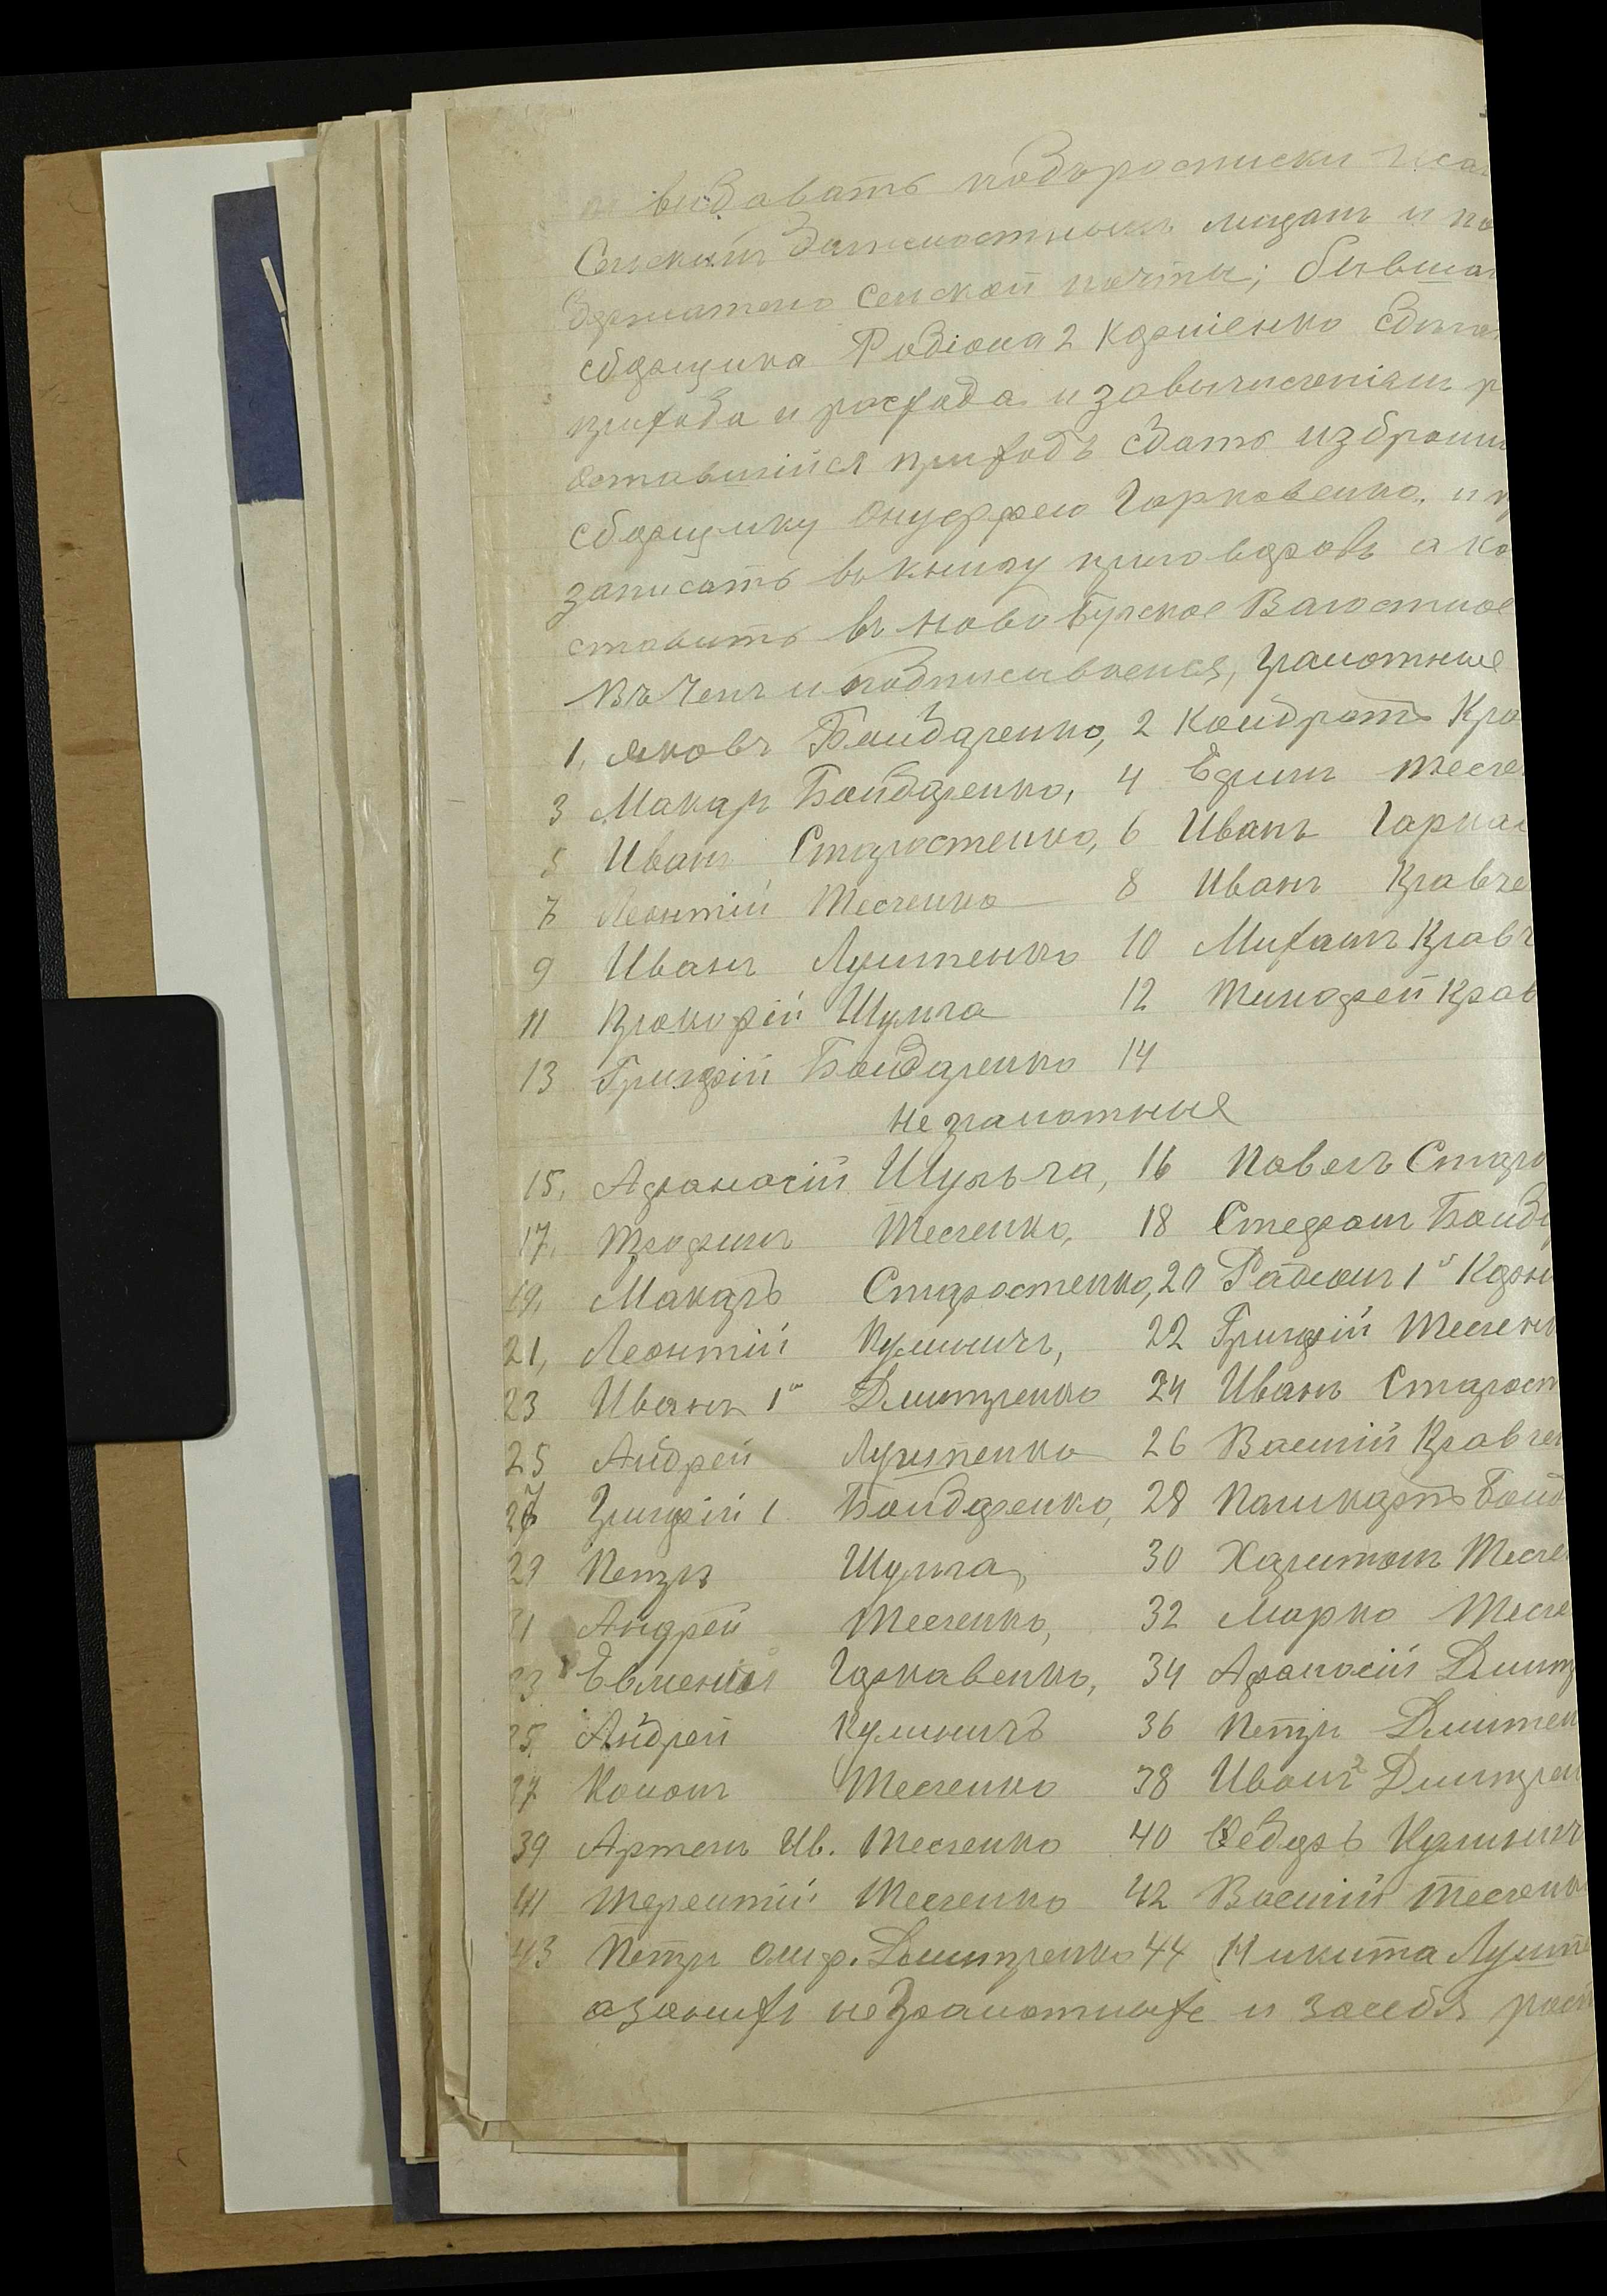 видавать подъросписки Писа
Сельскимъ должностнымъ лицамъ и по
держателю сельской почты; бывша
сборщика Родіона 2 Корніенко
прихода и росхода и завычисленіемъ р
оставшійся приходъ сдать избранн
сборщику Онуфрею Гарковенко. и п
записать въ книгу приговоровъ а ко
ставить въ Новобугское Волостное
Въ чемъ и подписиваемся, грамотные
1, Яковъ Бондаренко, 2 Кондратъ Кра
3 Макаръ Бондаренко, 4 Ефимъ Тесле
5 Иванъ Старостенко, 6 Иванъ Гарка
7 Леонтій Тесленко 8 Иванъ Кравче
9 Иванъ Луштенко 10 Михаилъ Кравч
11 Прокофій Шульга 12 Тимофей Крав
13 Григорій Бондаренко 14
не грамотные
15, Афанасій Шульга, 16 Павелъ Старо
17, Трофимъ Тесленко, 18 Стефанъ Бонда
19, Макаръ Старостенко, 20 Радіонъ 1й Корн
21, Леонтій Кулиничъ, 22 Григорій Тесленк
23 Иванъ 1й Дмитренко 24 Иванъ Старост
25 Андрей Луштенко 26 Василій Кравчен
27 Григорій 1 Бондаренко, 28 Панкратъ Бонд
29 Петръ Шульга, 30 Харитонъ Тесле
31 Андрей Тесленко, 32 Марко Тесле
33 Евменій Гаркавенко, 34 Афанасій Дмитр
35, Андрей Кулиничъ 36 Петръ Дмитен
37 Кононъ Тесленко 38 Иванъ 2 Дмитрен
39 Артемъ Ив. Тесленко 40 Ѳедоръ Кулинич
41 Терентій Тесленко 42 Василій Тесленко
43 Петръ Дмитренко 44 Никита Луште
азанихъ неграмотныхъ и засебя росп